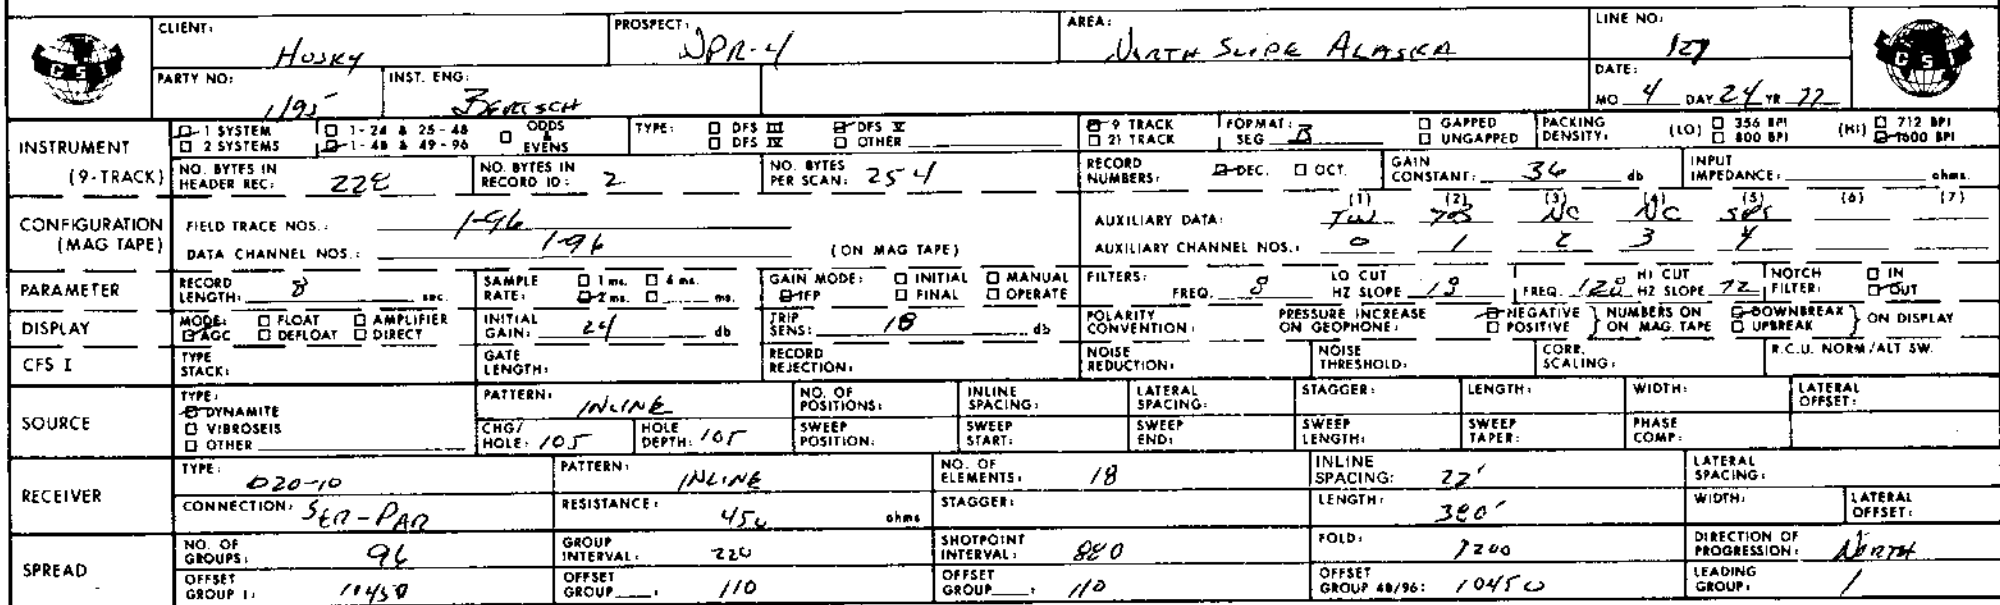 CLIENT: HUSKY PROSPECT: NPR-4 AREA: NORTH SLOPE ALASKA LINE NO:
GSI GSI
PARTY NO: 1195 INST. ENG: DATE: MO 4 DAY 24 YR 77
INSTRUMENT (9-TRACK)
1 SYSTEM 1-24 & 25-48 ODDS & EVENS TYPE: DFS III DFS V 9 TRACK FORMAT: SEG B GAPPED PACKING DENSITY: (LO) 356 BPI (HI) 712 BPI
2 SYSTEMS 1-48 & 49-96 DFS IV OTHER 21 TRACK UNGAPPED 800 BPI 1600 BPI
NO. BYTES IN HEADER REC: 228 NO. BYTES IN RECORD ID: 2 NO. BYTES PER SCAN: 254 RECORD NUMBERS: DEC. OCT. GAIN CONSTANT: 36 db INPUT IMPEDANCE: ohms.
CONFIGURATION (MAG TAPE)
FIELD TRACE NOS.: 1-96 AUXILIARY DATA: (1) TW (2) (3) NC (4) NC (5) (6) (7)
DATA CHANNEL NOS.: 1-96 (ON MAG TAPE) AUXILIARY CHANNEL NOS.: 0 1 2 3 4
PARAMETER RECORD LENGTH: 8 sec. SAMPLE RATE: 1 ms. 4 ms. 2 ms. ms. GAIN MODE: INITIAL MANUAL IFP FINAL OPERATE FILTERS: FREQ. 8 LO CUT HZ SLOPE 18 FREQ. 128 HI CUT HZ SLOPE 72 NOTCH FILTER: IN OUT
DISPLAY MODE: FLOAT AMPLIFIER AGC DEFLOAT DIRECT INITIAL GAIN: 24 db TRIP SENS: 18 db POLARITY CONVENTION: PRESSURE INCREASE ON GEOPHONE: NEGATIVE POSITIVE NUMBERS ON ON MAG. TAPE DOWNBREAK UPBREAK ON DISPLAY
CFS I TYPE STACK: GATE LENGTH: RECORD REJECTION: NOISE REDUCTION: NOISE THRESHOLD: CORR. SCALING: R.C.U. NORM/ALT SW.
SOURCE TYPE: DYNAMITE VIBROSEIS OTHER
PATTERN: INLINE NO. OF POSITIONS: INLINE SPACING: LATERAL SPACING: STAGGER: LENGTH: WIDTH: LATERAL OFFSET:
CHG/HOLE: 105 HOLE DEPTH: 105 SWEEP POSITION: SWEEP START: SWEEP END: SWEEP LENGTH: SWEEP TAPER: PHASE COMP:
RECEIVER TYPE: D20-10 PATTERN: INLINE NO. OF ELEMENTS: 18 INLINE SPACING: 22' LATERAL SPACING:
CONNECTION: SER-PAR RESISTANCE: 450 ohms STAGGER: LENGTH: 380' WIDTH: LATERAL OFFSET:
SPREAD NO. OF GROUPS: 96 GROUP INTERVAL: 220 SHOTPOINT INTERVAL: 880 FOLD: DIRECTION OF PROGRESSION: NORTH
OFFSET GROUP 1: 10450 OFFSET GROUP : 110 OFFSET GROUP : 110 OFFSET GROUP 48/96: 10450 LEADING GROUP: 1